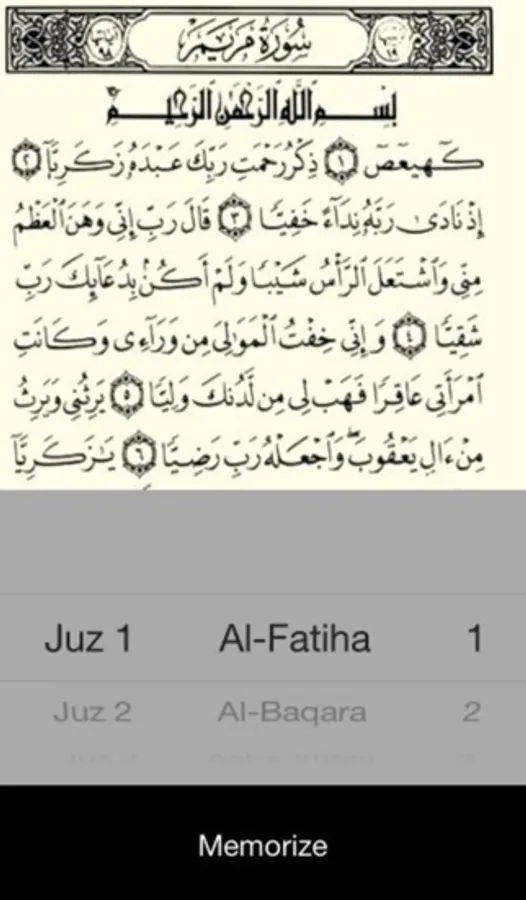 سُورَةُ مَرْيَمَ
بِسْمِ ٱللَّهِ ٱلرَّحْمَٰنِ ٱلرَّحِيمِ
كٓهيعٓصٓ ١ ذِكْرُ رَحْمَتِ رَبِّكَ عَبْدَهُۥ زَكَرِيَّآ ٢
إِذْ نَادَىٰ رَبَّهُۥ نِدَآءً خَفِيًّا ٣ قَالَ رَبِّ إِنِّى وَهَنَ ٱلْعَظْمُ
مِنِّى وَٱشْتَعَلَ ٱلرَّأْسُ شَيْبًا وَلَمْ أَكُنۢ بِدُعَآئِكَ رَبِّ
شَقِيًّا ٤ وَإِنِّى خِفْتُ ٱلْمَوَٰلِىَ مِن وَرَآءِى وَكَانَتِ
ٱمْرَأَتِى عَاقِرًا فَهَبْ لِى مِن لَّدُنكَ وَلِيًّا ٥ يَرِثُنِى وَيَرِثُ
مِنْ ءَالِ يَعْقُوبَ ۖ وَٱجْعَلْهُ رَبِّ رَضِيًّا ٦ يَٰزَكَرِيَّآ
Juz 1 Al-Fatiha 1
Juz 2 Al-Baqara 2
Memorize